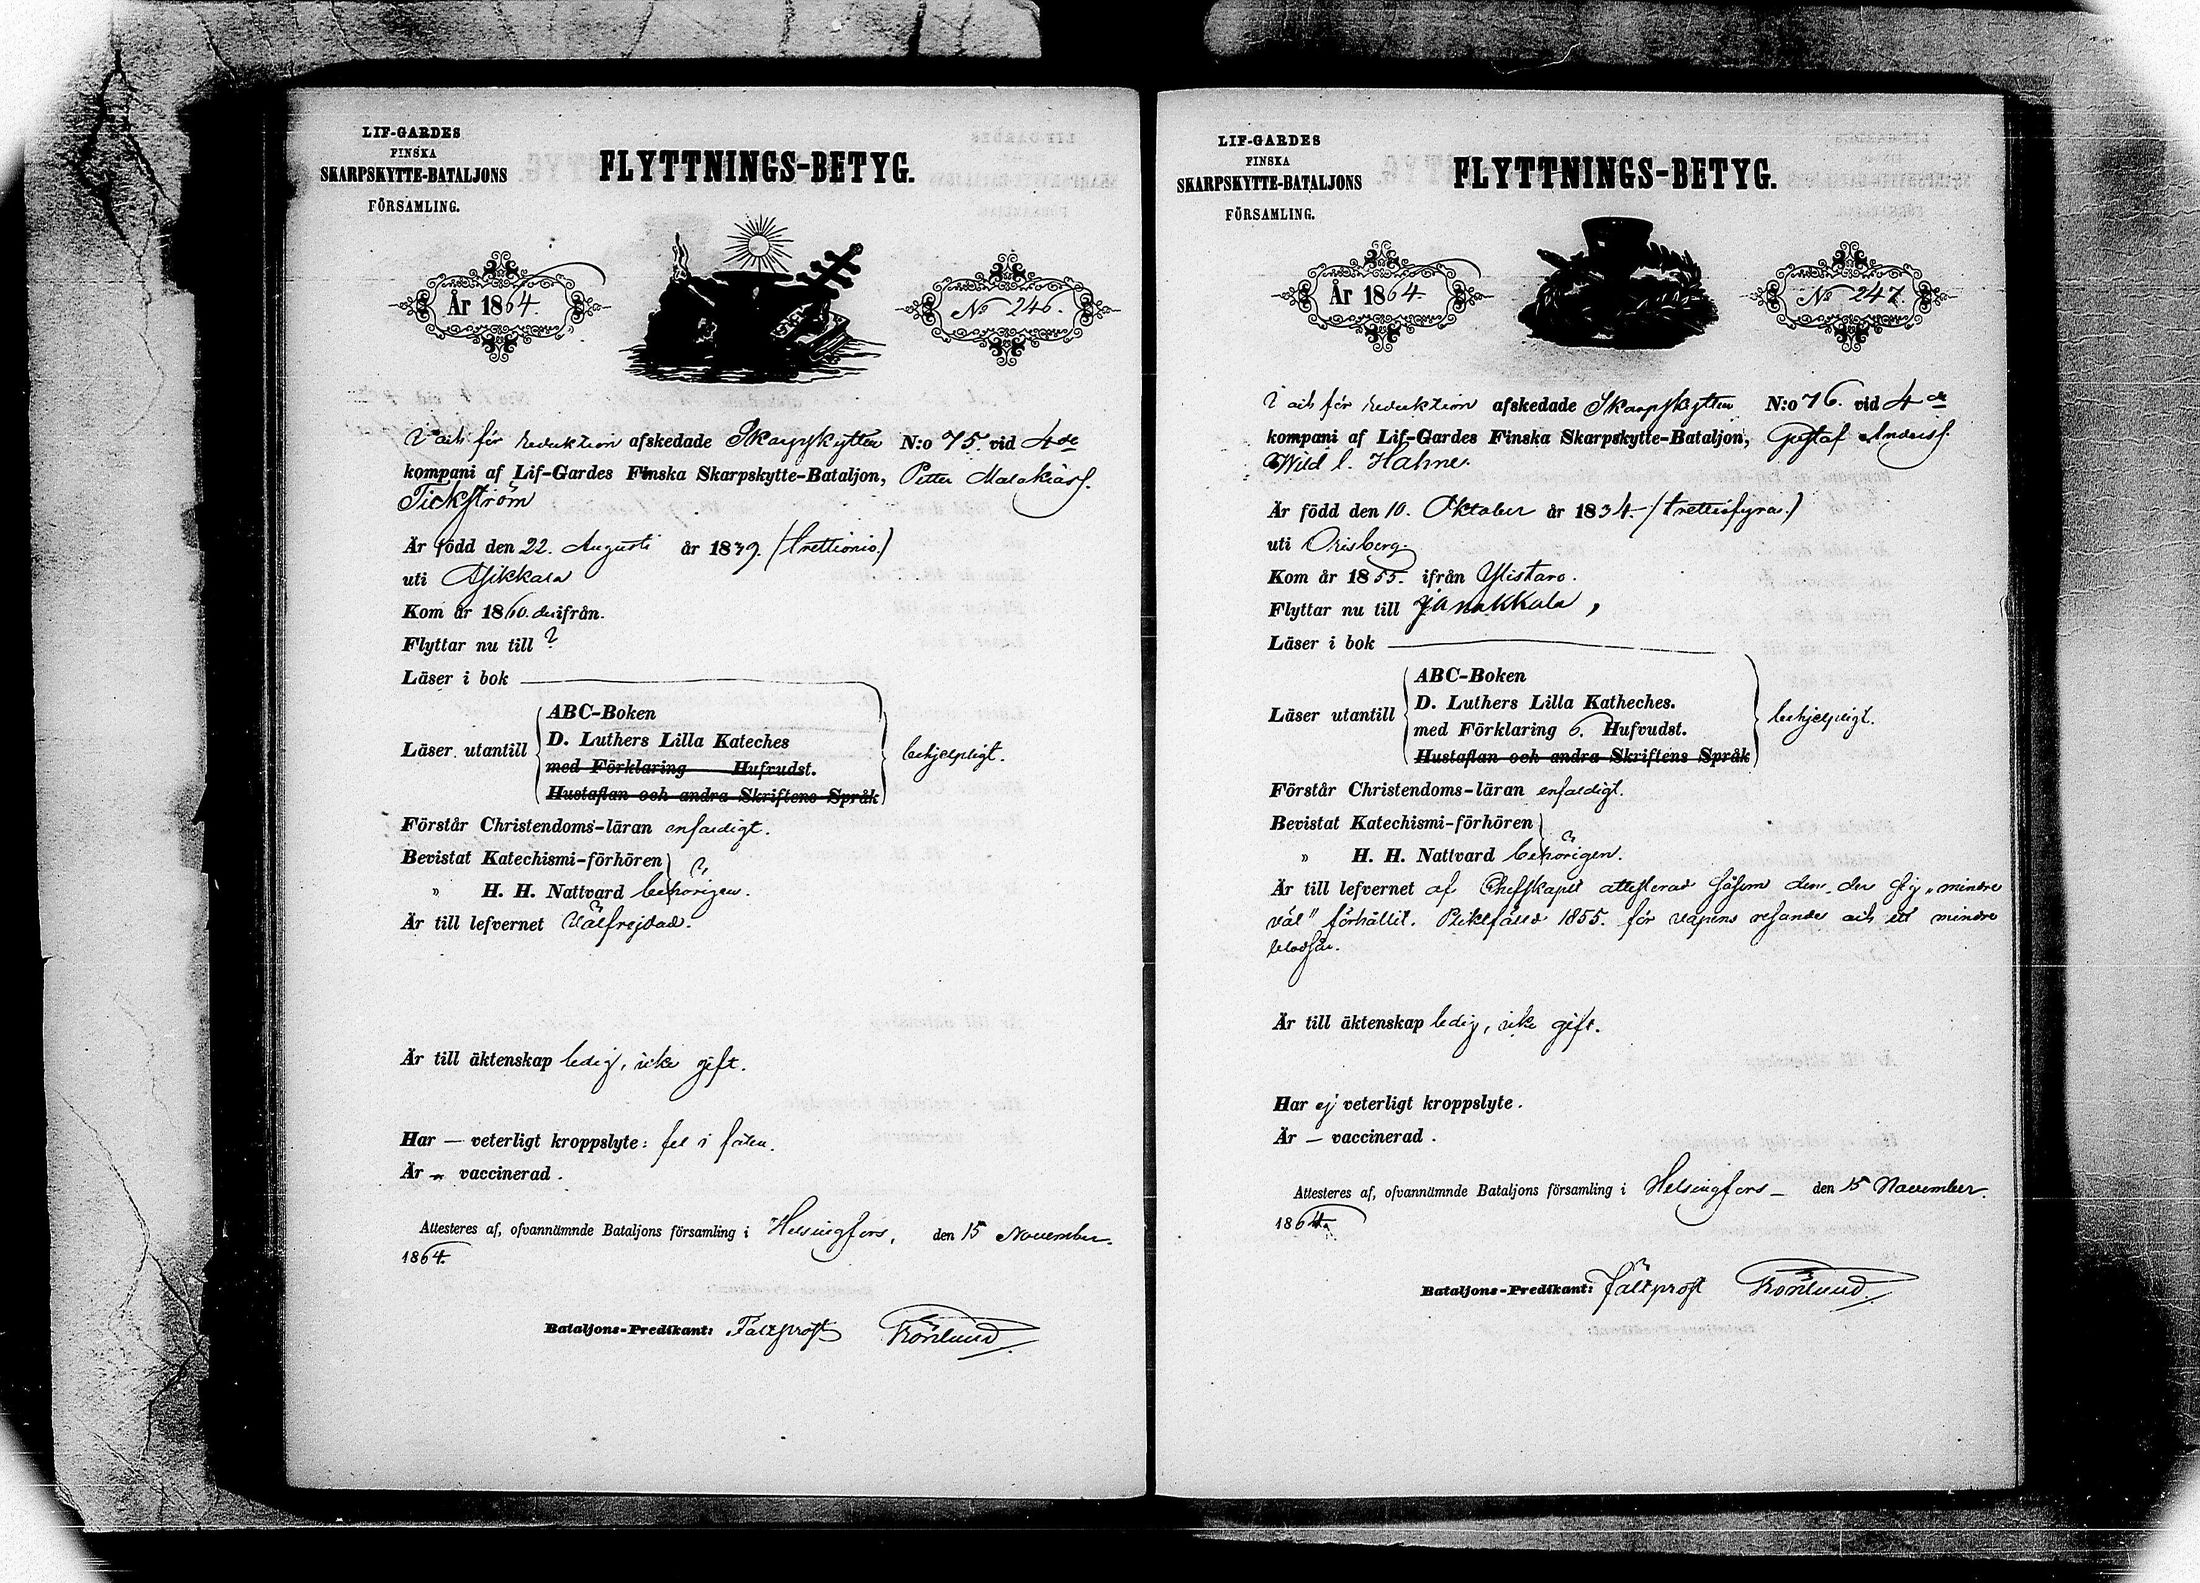 LIF-GARDES
FINSKA
SKARPSKYTTE-BATALJONS
FÖRSAMLING.
FLYTTNINGS-BETYG.
År 1864.
No 246.
för reduktion afskedade Skarpskytten N:o 75. vid 4de
kompani af Lif-Gardes Finska Skarpskytte-Bataljon, Petter Malakiasf.
Tickström
Är född den 22. Augusti år 1839. (trettionio.)
uti Asikkala
Kom år 1860. derifrån.
Flyttar nu till ?
Läser i bok
Läser utantill
ABC-Boken
D. Luthers Lilla Kateches
med Förklaring Hufvudst.
Hustaflan och andra Skriftens Språk
behjelpligt.
Förstår Christendoms-läran enfaldigt.
Bevistat Katechismi-förhören
" H. H. Nattvard behörigen.
Är till lefvernet Välfrejdad.
Är till äktenskap ledig, icke gift.
Har — veterligt kroppslyte: fel i foten.
Är — vaccinerad.
Attesteres af, ofvannämnde Bataljons församling i Helsingfors, den 15 November.
1864.
Bataljons-Predikant: Fältprost Rönlund.
LIF-GARDES
FINSKA
SKARPSKYTTE-BATALJONS
FÖRSAMLING.
FLYTTNINGS-BETYG.
År 1864
No 247
för reduktion afskedade Skarpskytten N:o 76. vid 4de
kompani af Lif-Gardes Finska Skarpskytte-Bataljon, Gustaf Andersf.
Wild l. Hahne.
Är född den 10. Oktober år 1834. (trettiofyra.)
uti Orisberg.
Kom år 1855. ifrån Ylistaro.
Flyttar nu till Janakkala,
Läser i bok
Läser utantill
ABC-Boken
D. Luthers Lilla Katheches.
med Förklaring 6. Hufvudst.
Hustaflan och andra Skriftens Språk
behjelpligt.
Förstår Christendoms-läran enfaldigt.
Bevistat Katechismi-förhören
" H. H. Nattvard behörigen.
Är till lefvernet af Chefskapet attesterad såsom den, der sig "mindre
väl" förhållit. Pliktfälld 1855. för vapens resande och ett mindre
blodsår.
Är till äktenskap ledig, icke gift.
Har ej veterligt kroppslyte.
Är — vaccinerad.
Attesteres af, ofvannämnde Bataljons församling i Helsingfors — den 15 November.
1864.
Bataljons-Predikant: Fältprost Rönlund.